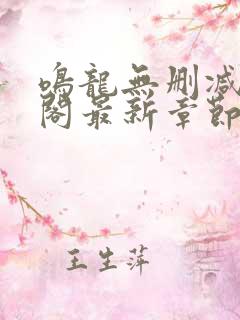 鳴龍無删减
閣最新章節
王生萍